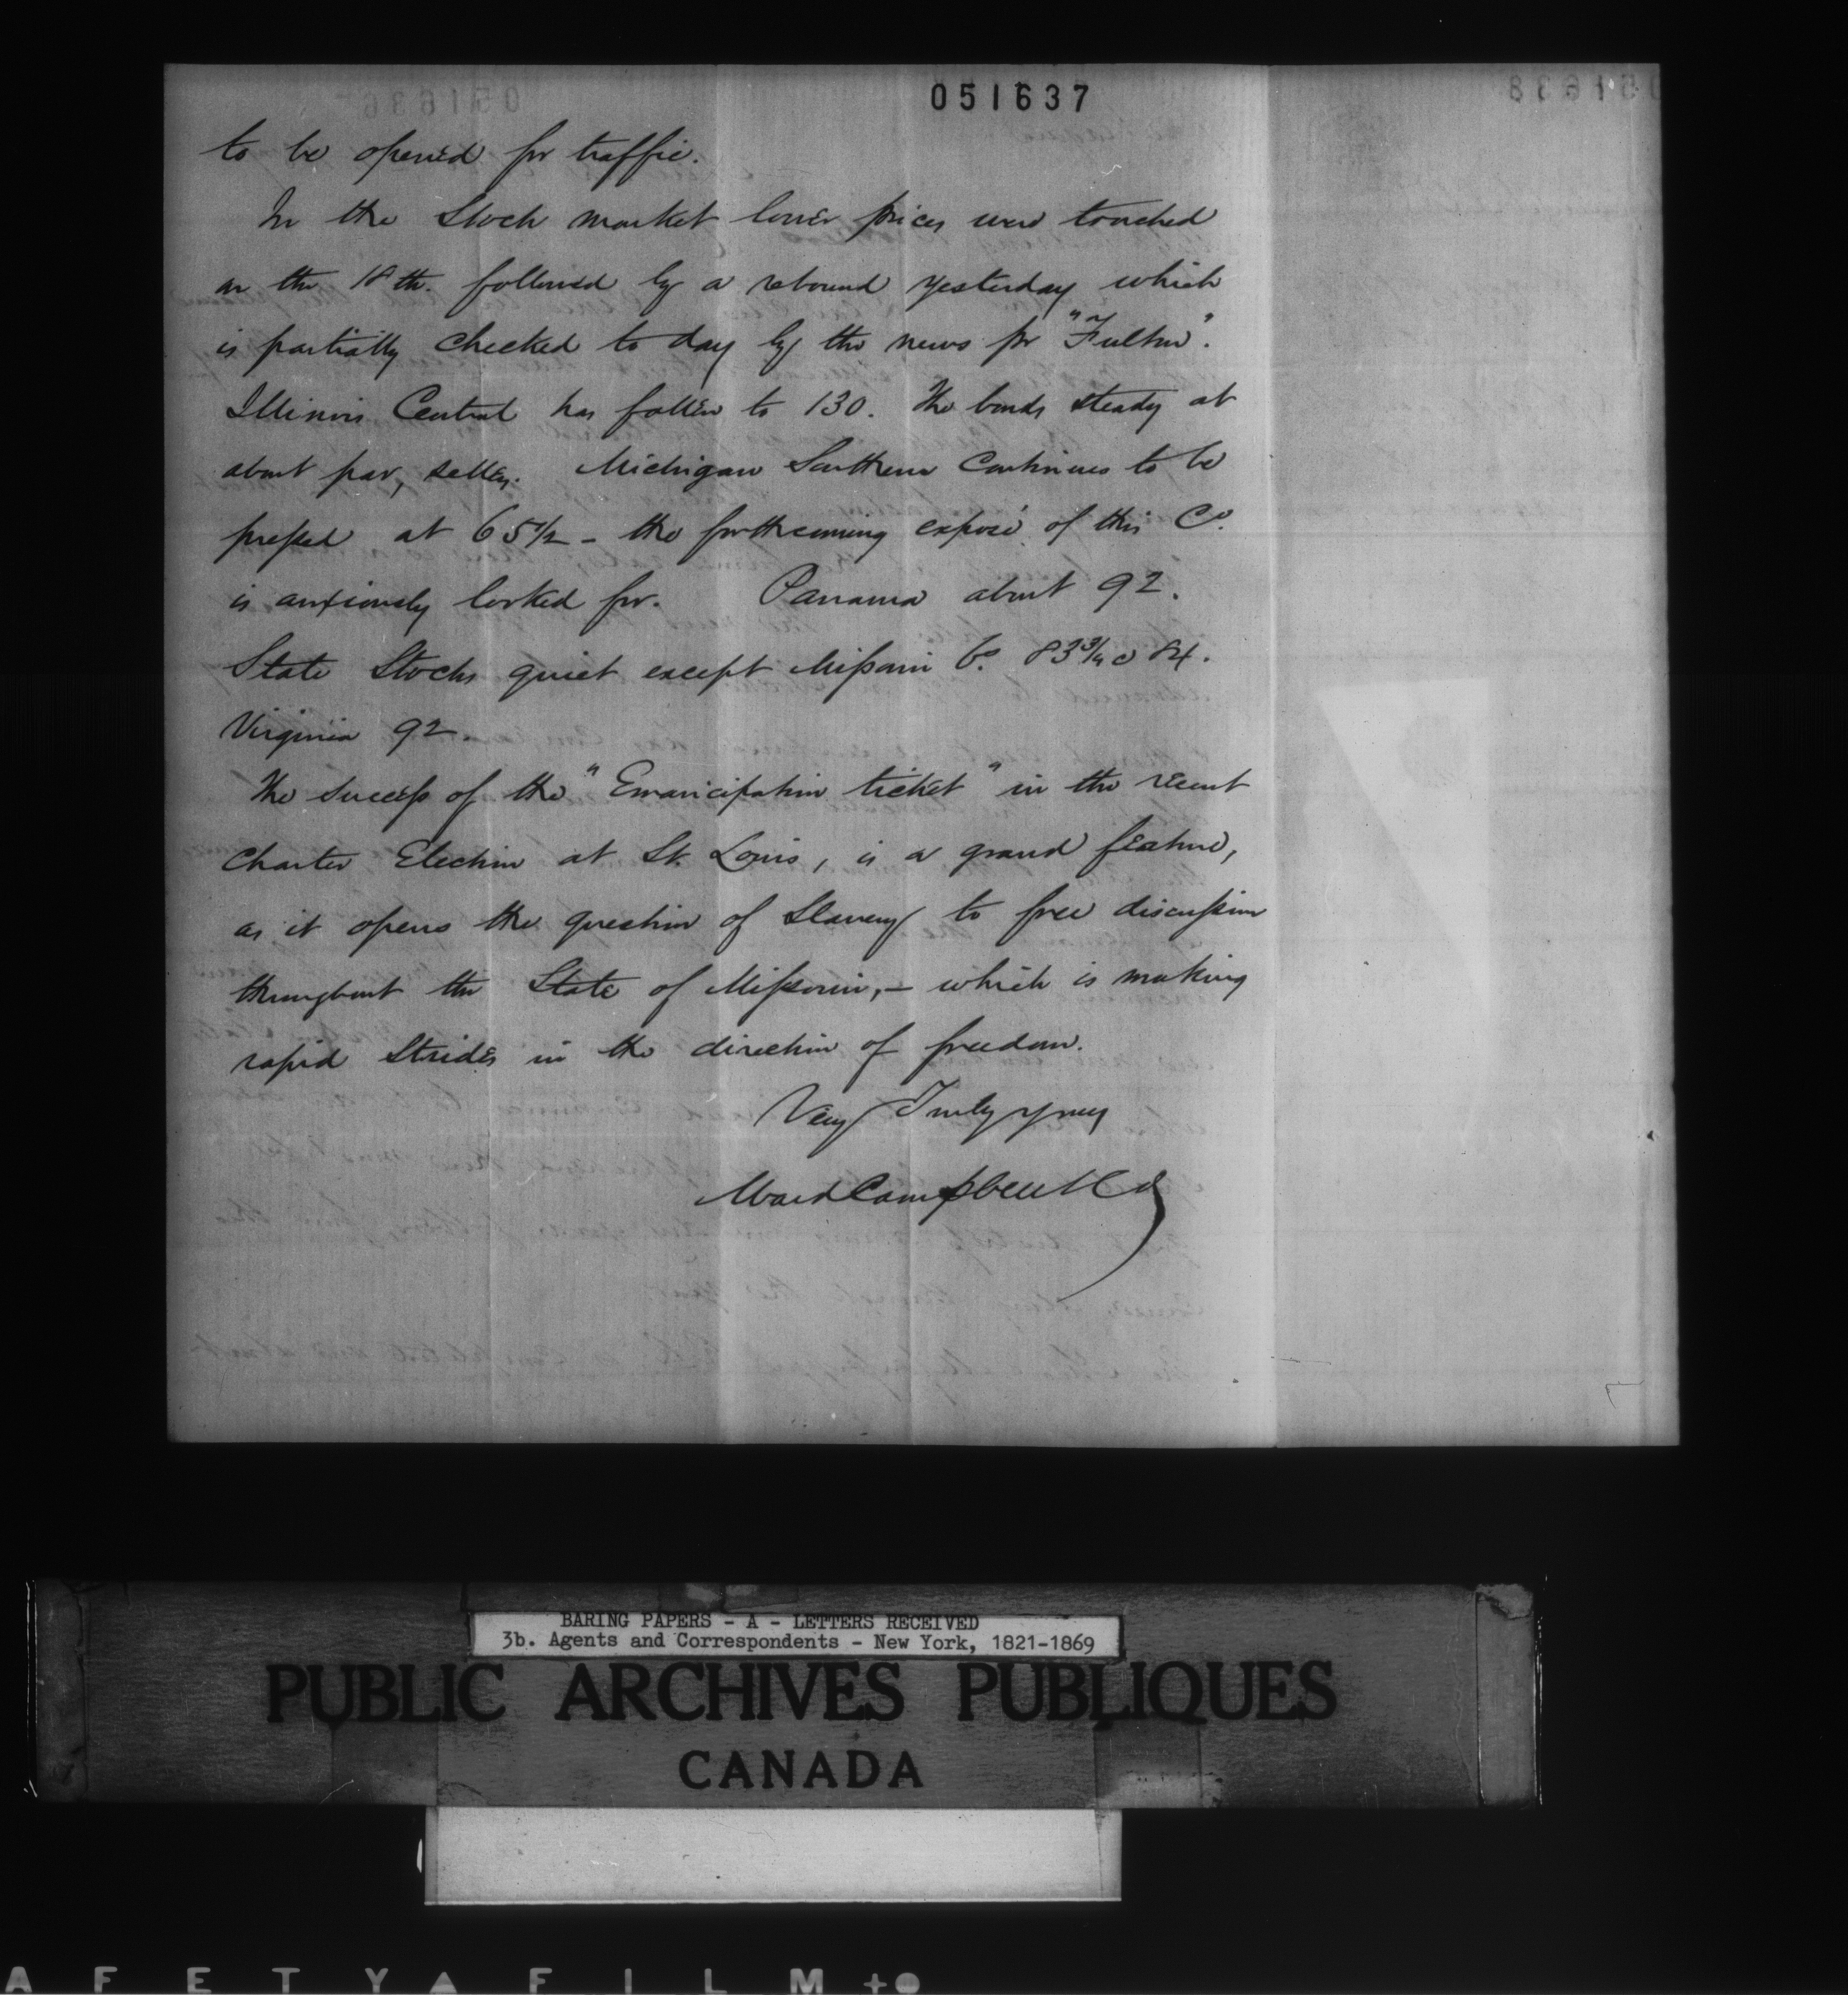 051637
to be opened for traffic.
In the Stock market lower prices were touched
on the 18th. followed by a rebound yesterday which
is partially checked to day by the news pr "Fulton".
Illinois Central has fallen to 130. The bonds steady at
about par, sellers. Michigan Southern continues to be
pressed at 65 1/2 - the forthcoming exposé of this Co.
is anxiously looked for. Panama about 92.
State Stocks quiet except Missouri 6s. 83 3/4 @ 84.
Virginia 92.
The success of the "Emancipation ticket" in the recent
Charter Election at St. Louis, is a grand feature,
as it opens the question of Slavery to free discussion
throughout the State of Missouri, - which is making
rapid strides in the direction of freedom.
Very Truly yours
Ward Campbell & Co
BARING PAPERS - A - LETTERS RECEIVED
3b. Agents and Correspondents - New York, 1821-1869
PUBLIC ARCHIVES PUBLIQUES
CANADA
AFETY▲FILM+●